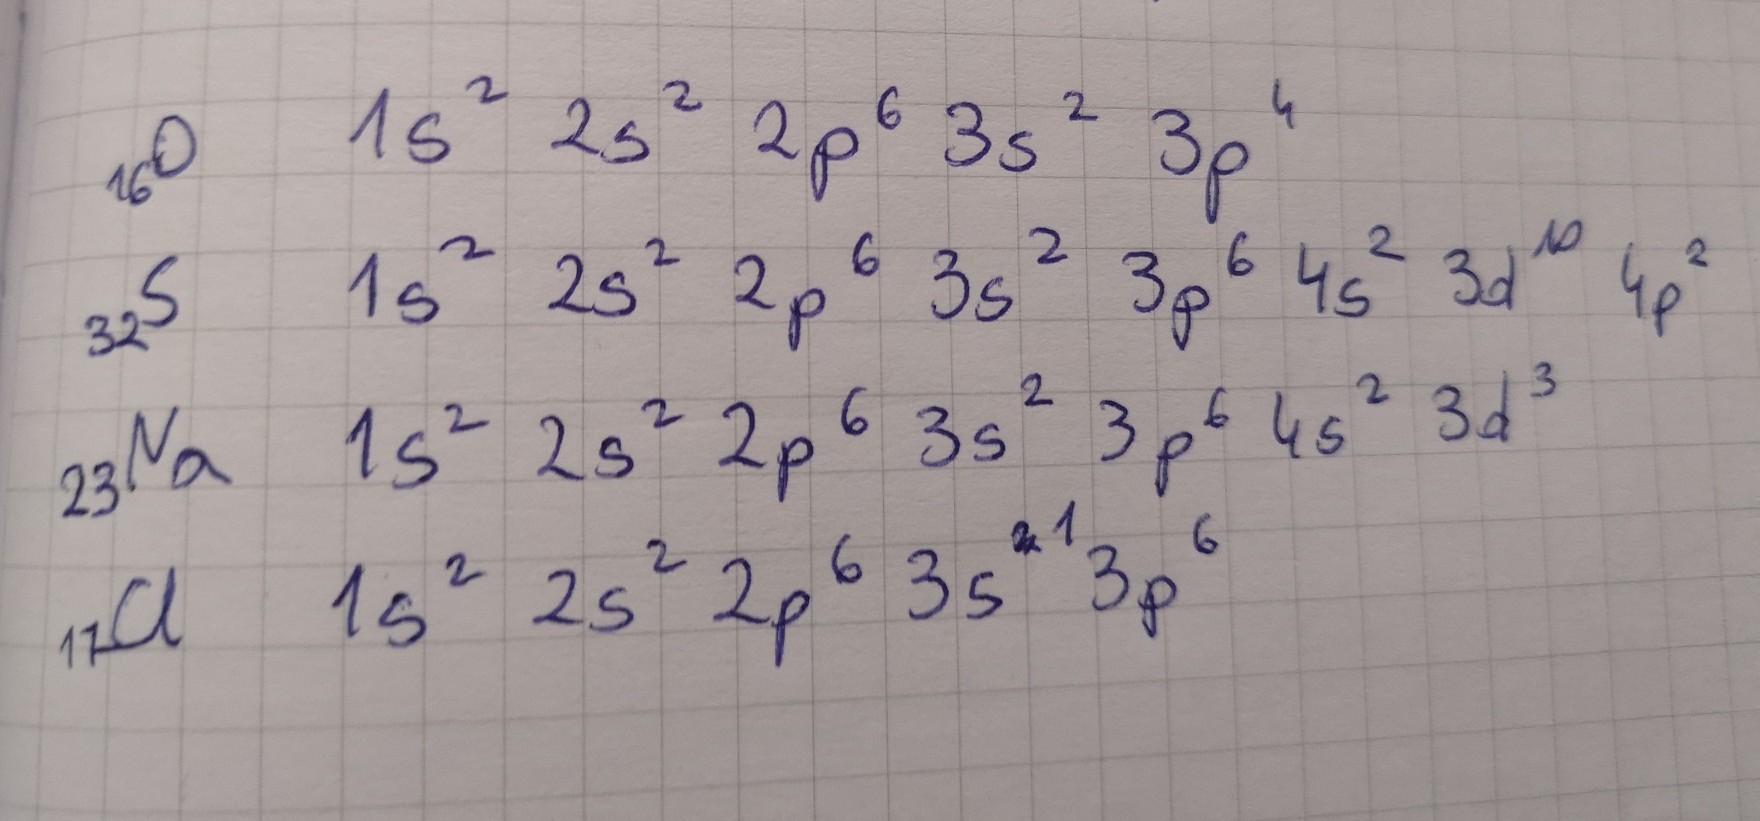 ₁₆O 1s² 2s² 2p⁶ 3s² 3p⁴
₃₂S 1s² 2s² 2p⁶ 3s² 3p⁶ 4s² 3d¹⁰ 4p²
₂₃Na 1s² 2s² 2p⁶ 3s² 3p⁶ 4s² 3d³
₁₇Cl 1s² 2s² 2p⁶ 3s¹ 3p⁶